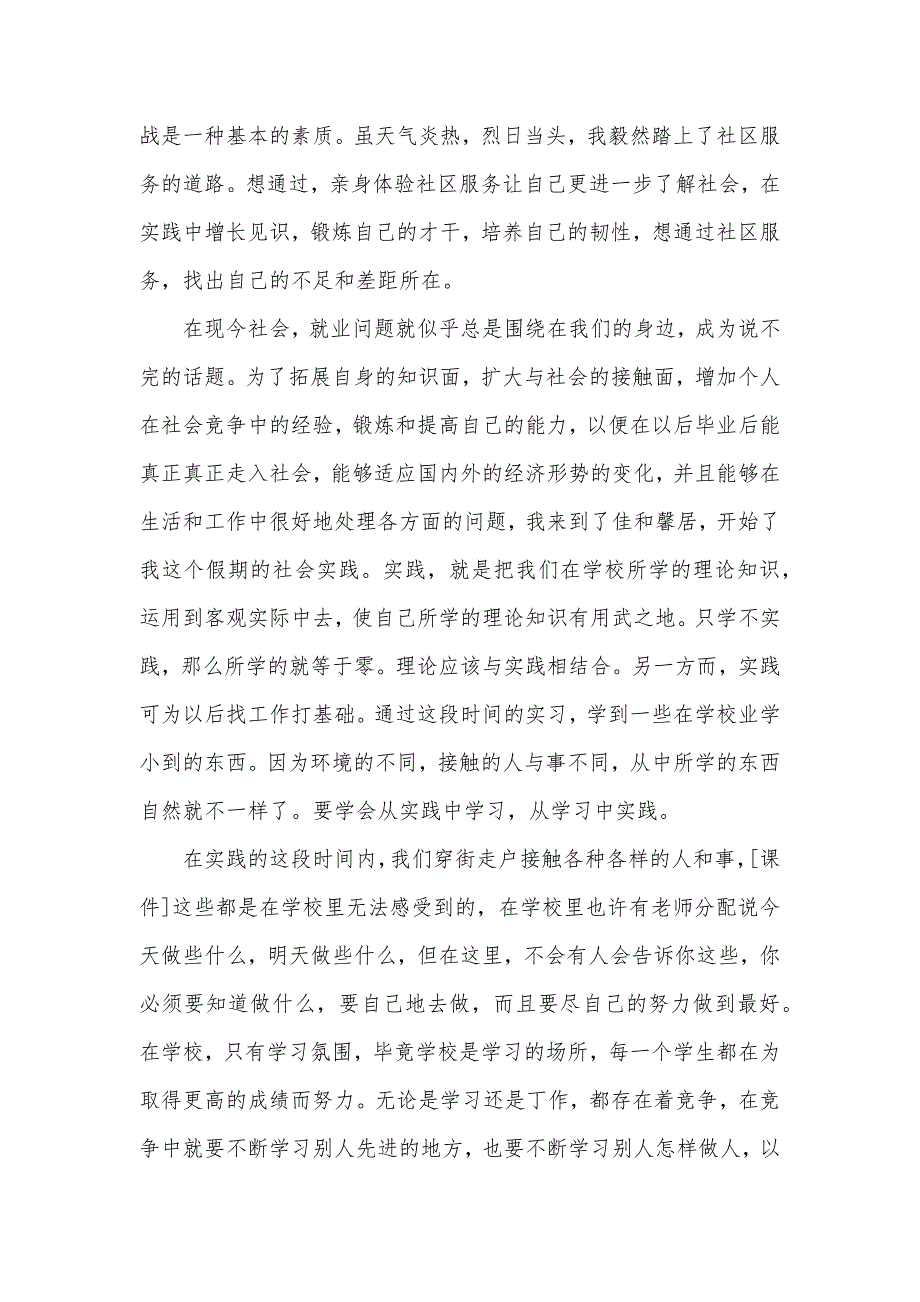 战是一种基本的素质。虽天气炎热，烈日当头，我毅然踏上了社区服
务的道路。想通过，亲身体验社区服务让自己更进一步了解社会，在
实践中增长见识，锻炼自己的才干，培养自己的韧性，想通过社区服
务，找出自己的不足和差距所在。
在现今社会，就业问题就似乎总是围绕在我们的身边，成为说不
完的话题。为了拓展自身的知识面，扩大与社会的接触面，增加个人
在社会竞争中的经验，锻炼和提高自己的能力，以便在以后毕业后能
真正真正走入社会，能够适应国内外的经济形势的变化，并且能够在
生活和工作中很好地处理各方面的问题，我来到了佳和馨居，开始了
我这个假期的社会实践。实践，就是把我们在学校所学的理论知识，
运用到客观实际中去，使自己所学的理论知识有用武之地。只学不实
践，那么所学的就等于零。理论应该与实践相结合。另一方而，实践
可为以后找工作打基础。通过这段时间的实习，学到一些在学校业学
小到的东西。因为环境的不同，接触的人与事不同，从中所学的东西
自然就不一样了。要学会从实践中学习，从学习中实践。
在实践的这段时间内，我们穿街走户接触各种各样的人和事，[课
件]这些都是在学校里无法感受到的，在学校里也许有老师分配说今
天做些什么，明天做些什么，但在这里，不会有人会告诉你这些，你
必须要知道做什么，要自己地去做，而且要尽自己的努力做到最好。
在学校，只有学习氛围，毕竟学校是学习的场所，每一个学生都在为
取得更高的成绩而努力。无论是学习还是丁作，都存在着竞争，在竞
争中就要不断学习别人先进的地方，也要不断学习别人怎样做人，以